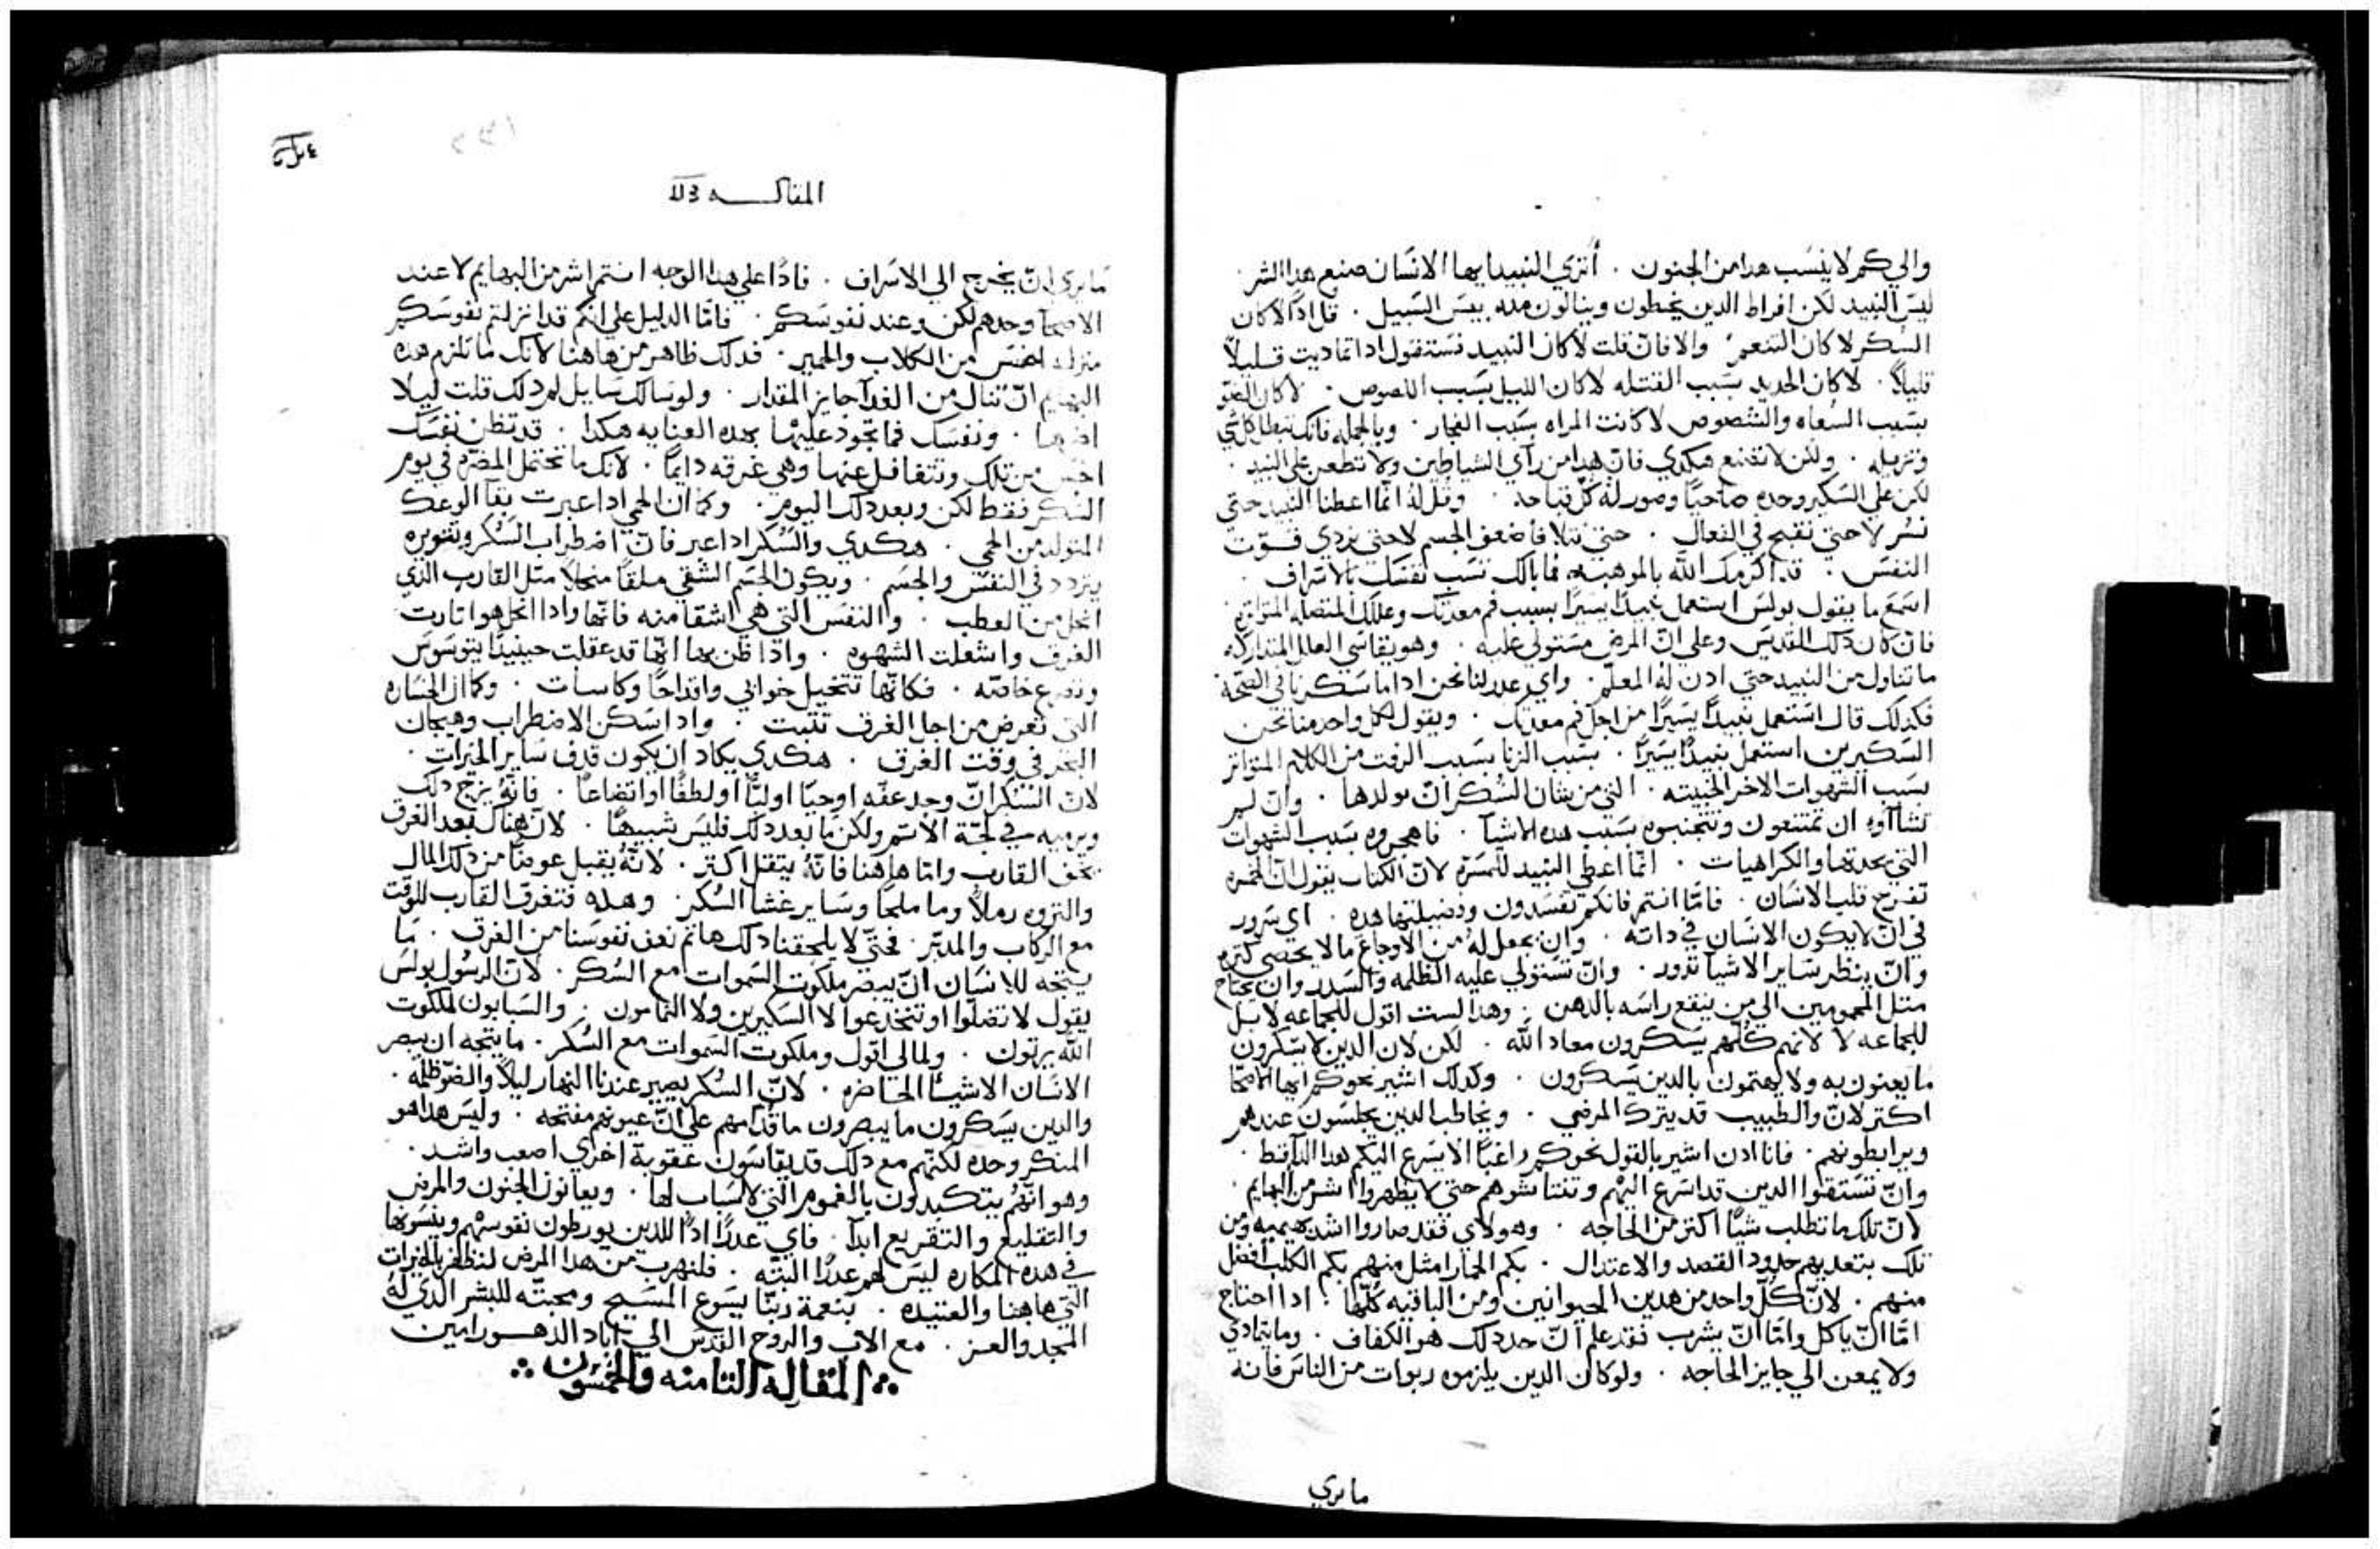 والي كم لا ينسب هدا من الجنون . أترى النبيد ايها الانسان صنع هدا الشر .
ليس النبيد لكن افراط الدين يخطون وينالون منه بيس السبيل . قل ادًا لا كان
السكر لا كان التنعم . والا فان قلت لا كان النبيد فستقول ادا تماديت قليلاً
قليلاً . لا كان الحديد بسبب القتله لا كان الليل بسبب اللصوص . لا كان الضو
بسبب السعاه لا كانت المراه بسبب الفجار . وبالجمله فانك تبطل كل شي
وتزيله . ولكن لا تقنع هكدي فان هدا من رآي الشياطين ولا تطعن على النبيد .
لكن على السكر وحده صاحيًا وصور له كل قباحه . وقل له انما اعطنا النبيد حتى
نسر لا حتى نقبح في الفعال . الجسم لا حتى نردي قوت
النفس . قد اكرمك الله بالموهبه فما بالك تسب نفسك بالاسراف .
اسمع ما يقول بولس استعمل نبيدًا يسيرًا بسبب فم معدتك وعللك المتصله المتواتره
فان كان دلك القديس وعلى ان المرض مستولي عليه . وهو يقاسي العلل المتداركه
ما تناول من النبيد حتى ادن له المعلم . واي عدر لنا نحن ادا ما سكرنا في الصحة
فكدلك قال استعمل نبيدًا يسيرًا من اجل فم معدتك . ويقول لكل واحد منا نحن
السكيرين استعمل نبيدًا يسيرًا . بسبب الزنا بسبب الرفت من الكلام المتواتر
بسبب الشهوات الاخر الخبيثه . التي من شان السكر ان يولدها . وان لم
تشاآوه ان تمتنعون وتتجنبوه بسبب هده الاشيآ . فاهجروه بسبب الشهوات
التي يحدثها والكراهيات . انما اعطي النبيد للمسرة لان الكتاب يقول ان الخمره
تفرح قلب الانسان . فامّا انتم فانكم تفسدون وفضيلتها هده . اي سرور
في ان لا يكون الانسان في داته . وان يجعل له من الاوجاع ما لا يحصي كثره
وان ينظر ساير الاشيا تدور . وان تستولي عليه الظلمه والسدد وان يحتاج
متل المحمومين الي من ينقع راسه بالدهن . وهدا لست اقول للجماعه لا بل
للجماعه لا لانهم كلهم يسكرون معاد الله . لكن لان الدين لا يسكرون
ما يعنون به ولا يهتمون بالدين يسكرون . وكدلك اشير نحوكم ايها الاصحا
اكتر لان والطبيب قد يترك المرضي . ويخاطب الدين يجلسون عندهم
ويرابطونهم . فانا ادن اشير بالقول نحوكم راغبًا الا يسرع اليكم هدا الدآ قط .
وان تستقوا الدين قد اسرع اليهم وتنتاشوهم حتى لا يظهروا اشر من البهايم .
لان تلك ما تطلب شيًا اكتر من الحاجه . وهولاي فقد صاروا اشد بهيميه من
تلك بتعديهم حدود القصد والاعتدال . بكم الحمار امتل منهم بكم الكلب افضل
منهم . لان كل واحد من هدين الحيوانين ومن الباقيه كلها . ادا احتاج
امّا ان ياكل وامّا ان يشرب فقد علم ان حد دلك هو الكفاف . وما يتمادى
ولا يمعن الي جايز الحاجه . ولو كان الدين يلزموه ربوات من الناس فانه
ما يري
المقاله
ما يري ان يخرج الي الاسراف . فادًا علي هدا الوجه انتم اشر من البهايم لا عند
الاصحآ وحدهم لكن وعند نفوسكم . فامّا الدليل على انكم قد انزلتم نفوسكم
منزله اخس من الكلاب والحمير . فدلك ظاهر من هاهنا لانك ما تلزم هده
البهايم ان تنال من الغدآ جايز المقدار . ولو سالك سايل لم دلك قلت ليلا
اضرها . ونفسك فما تجود عليها بهده العنايه هكدا . قد تظن نفسك
اخس من تلك وتتغافل عنها وهي غرقه دايمًا . لانك ما تحتمل المضره في يوم
السكر فقط لكن وبعد دلك اليوم . وكما ان الحمي ادا عبرت بقآ الوعك
المتولد من الحمي . هكدي والسكر ادا عبر فان اضطراب السكر وتثويره
يتردد في النفس والجسم . ويكون الجسم الشقي ملقاً منحلاً متل القارب الذي
انحل من العطب . والنفس التي هي اشقا منه فانها وادا انحل هو اتارت
الغرق واشعلت الشهوه . وادا ظن بها انها قد عقلت حينيدًا يتوسوس
وتفرع خافته . فكانها تتخيل خوابي واقداحًا وكاسات . وكما ان الخساره
التي تعرض من اجل الغرق تتبت . وادا سكن الاضطراب وهيجان
البحر في وقت الغرق . هكدي يكاد ان يكون قدف ساير الخيرات .
لان السكر ان وجد عفّه او حيًا او لبًا او لطفًا او اتضاعًا . فانه يزج دلك
ويرميه في لجّة الاتم ولكن ما بعد دلك فليس شبيهًا . لان هناك بعد الغرق
يخف القارب وامّا هاهنا فانه يتقل اكتر . لانه يقبل عوضًا من دلك المال
والتروه رملاً وما ملحًا وساير غشا السكر . وهده فتغرق القارب للوقت
مع الركاب والمدبر . فحتى لا يلحقنا دلك هاتم نعف نفوسنا من الغرق . ما
يتجه للانسان ان يبصر ملكوت السموات مع السكر . لان الرسول بولس
يقول لا تضلوا او تنخدعوا لا السكيرين ولا النمامون . والسبابون لملكوت
الله يرتون . ولما لي اقول وملكوت السموات مع السكر . ما يتجه ان يبصر
الانسان الاشيآ الحاضره . لان السكر يصير عندنا النهار ليلاً والضو ظلمه .
والدين يسكرون ما يبصرون ما قدامهم علي ان عيونهم مفتحه . وليس هدا هو
المنكر وحده لكنهم مع دلك قد يقاسون عقوبة اخري اصعب واشد .
وهو انهم يتكبدون بالغموم التي لا اسباب لها . ويعانون الجنون والمرض
والتقليع والتقريع ابدًا . فاي عدرًا ادًا للدين يورطون نفوسهم وينسونها
في هده المكاره ليس لهم عدرًا البتّه . فلنهرب من هدا المرض لنظفر بالخيرات
التي هاهنا والعتيده . بنعمة ربّنا يسوع المسيح ومحبته للبشر الدي له
المجد والعز . مع الاب والروح القدس الي آباد الدهور امين
المقاله التامنه والخمسون